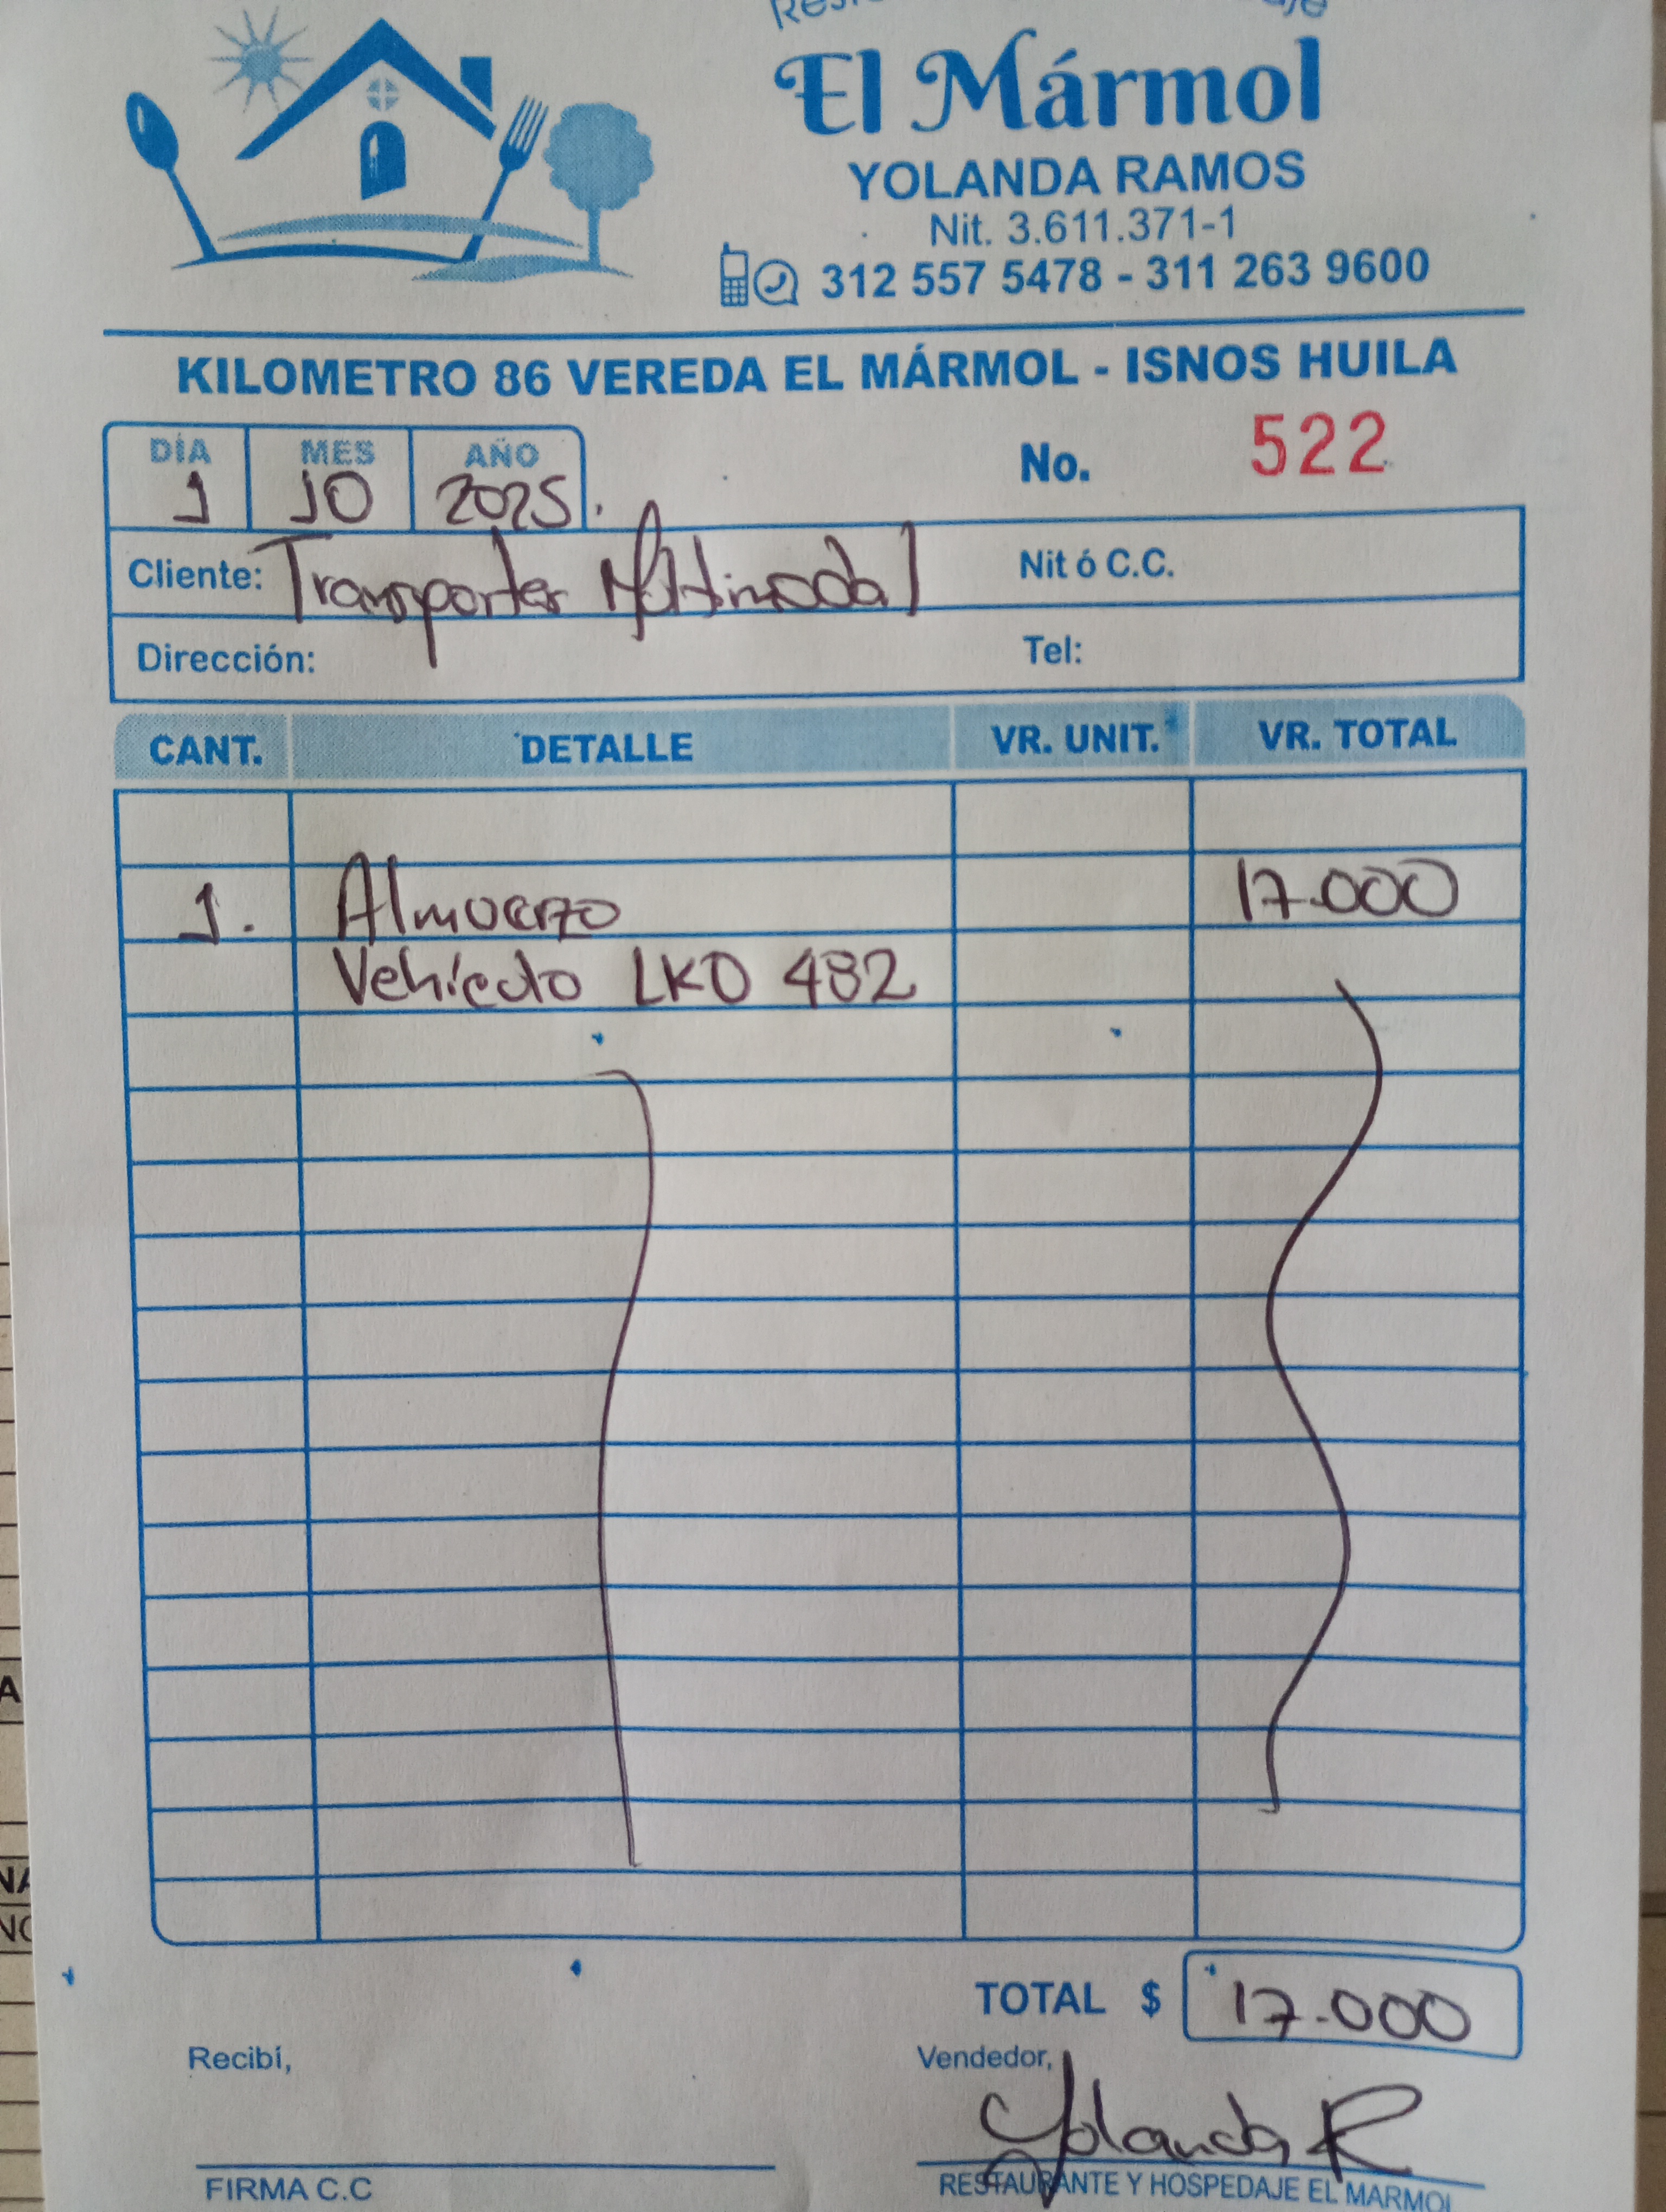 El Mármol
YOLANDA RAMOS
Nit. 3.611.371-1
312 557 5478 - 311 263 9600
KILOMETRO 86 VEREDA EL MÁRMOL - ISNOS HUILA
DÍA MES AÑO
1 10 2025.
No. 522
Cliente: Transportes Multimodal Nit ó C.C.
Dirección: Tel:
CANT. DETALLE VR. UNIT. VR. TOTAL
1. Almuerzo 17.000
Vehículo LKO 482
TOTAL $ 17.000
Recibí, Vendedor,
Yolanda R
FIRMA C.C RESTAURANTE Y HOSPEDAJE EL MARMOL